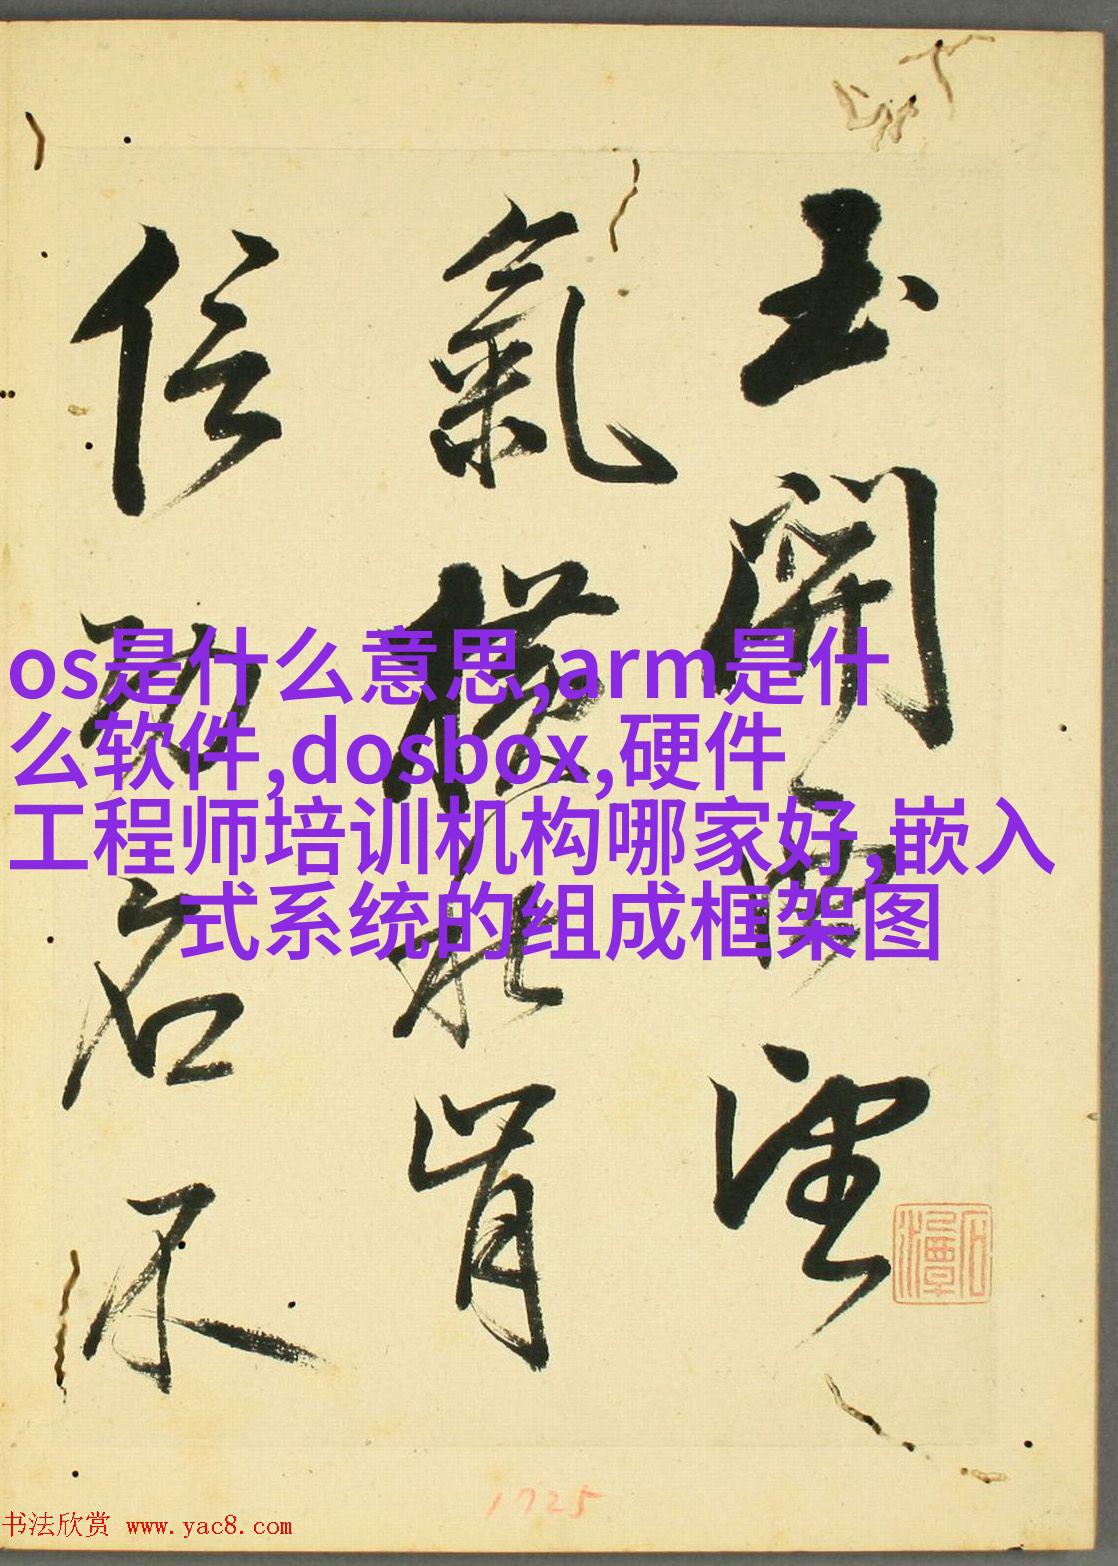 玉關西望
氣橫秋肯
信功名不
os是什么意思,arm是什
么软件,dosbox,硬件
工程师培训机构哪家好,嵌入
式系统的组成框架图
石潭
1725
书法欣赏 www.yac8.com